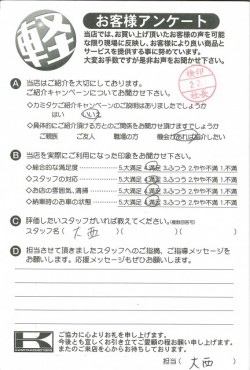 軽
お客様アンケート
当店では、お買い上げ頂いたお客様の声を可能
な限り現場に反映し、お客様により良い商品と
サービスを提供する事に努めています。
大変お手数ですが是非お声をお聞かせ下さい。
検印
社長
A 当店はご紹介を大切にしております。
ご紹介キャンペーンについてお聞かせ下さい。
◆カミタケご紹介キャンペーンのご説明はありましたでしょうか
はい いいえ
◆具体的にご紹介頂ける方とのご関係をお聞かせ頂けますでしょうか
ご親族 ご友人 職場の方 機会があれば紹介したい
B 当店を実際にご利用になった印象をお聞かせ下さい。
◆総合的な満足度 5.大満足 4.満足 3.ふつう 2.やや不満 1.不満
◆スタッフの対応 5.大満足 4.満足 3.ふつう 2.やや不満 1.不満
◆お店の雰囲気、清掃 5.大満足 4.満足 3.ふつう 2.やや不満 1.不満
◆納車時のお車の状態 5.大満足 4.満足 3.ふつう 2.やや不満 1.不満
C 評価したいスタッフがいれば教えてください。(複数回答可)
スタッフ名( 大西 )
D 担当させて頂きましたスタッフへのご指摘、ご指導メッセージを
お願いします。応援メッセージもぜひお願いします。
K
ご協力に心よりお礼を申し上げます。
今後とも宜しくお引き立てご愛顧の程お願い申し上げます。
またのご来店を心からお待ちしております。
担当( 大西 )